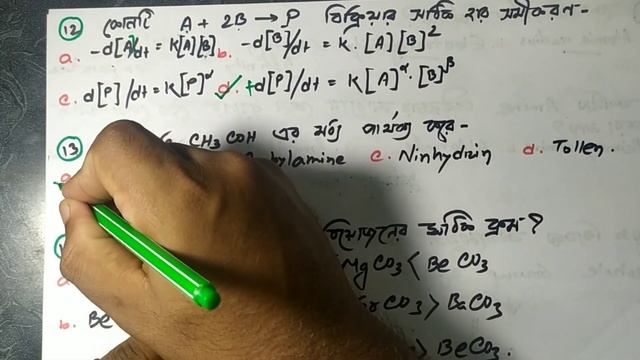 12 কোনটি A + 2B → P বিক্রিয়ার সঠিক হার সমীকরণ-
a. -d[A]/dt = K[A][B] b. -d[B]/dt = K.[A][B]²
c. d[P]/dt = K[P]^α d. +d[P]/dt = K[A]^α.[B]^β
13 CH3COH এর মধ্যে পার্থক্য করে-
bylamine c. Ninhydrin d. Tollen.
বিয়োজনের সঠিক ক্রম?
MgCO3 < BeCO3
CO3 > BaCO3
b. Be > BeCO3.